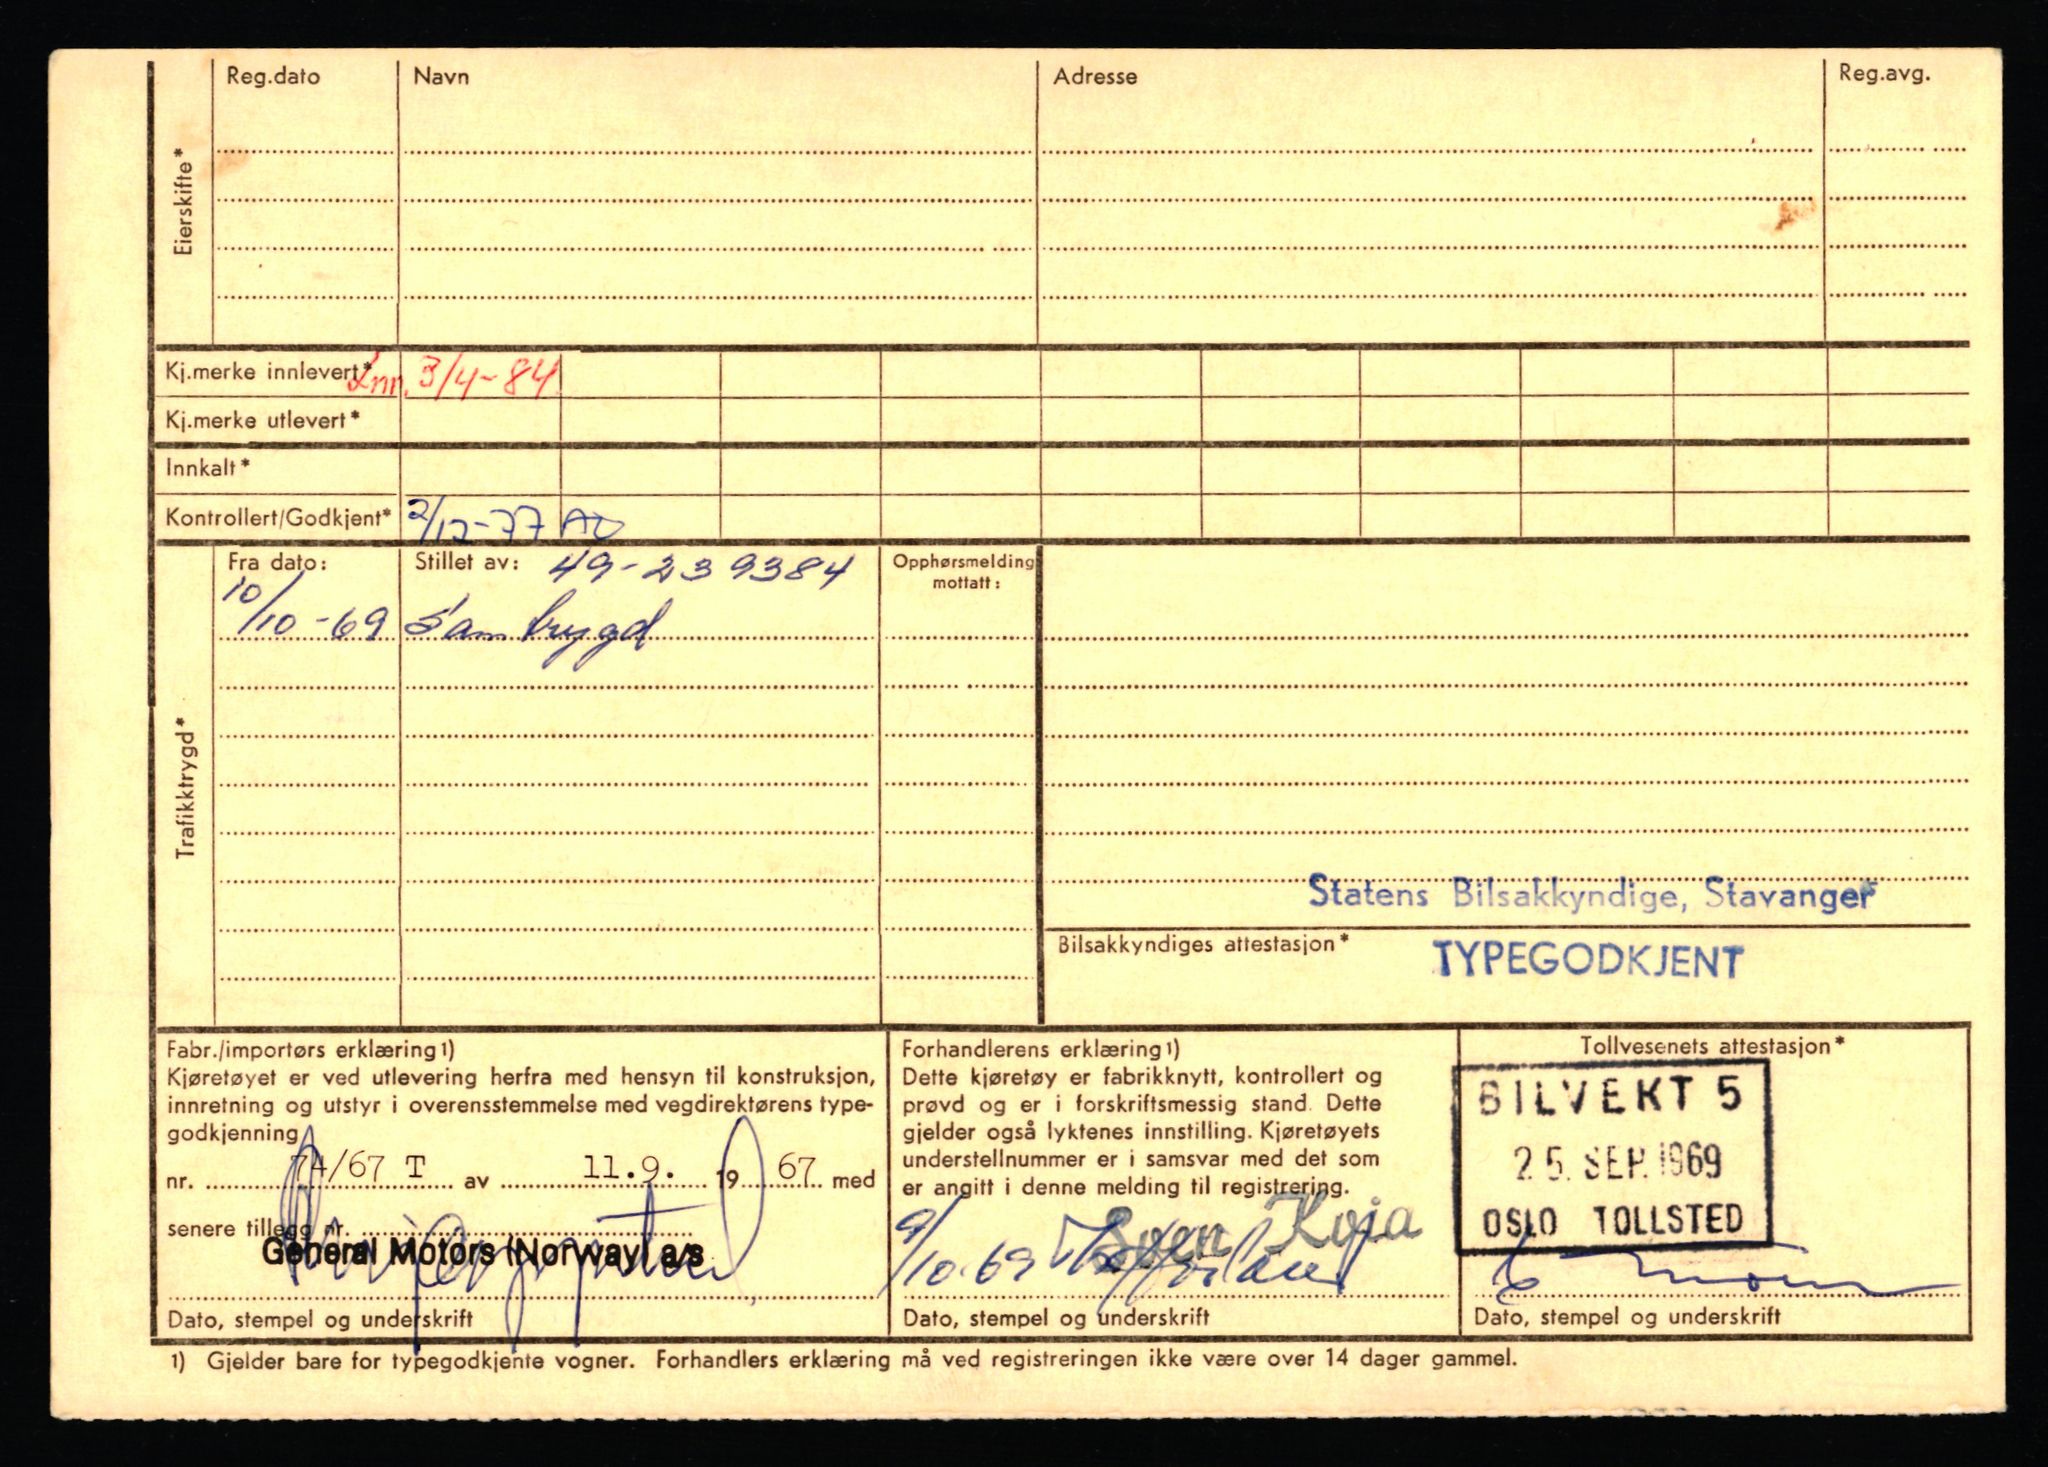 Reg.dato Navn Adresse Reg.avg.
Eierskifte*
Kj.merke innlevert* Inn. 3/4-84
Kj.merke utlevert*
Innkalt*
Kontrollert/Godkjent* 2/12-77
Trafikktrygd*
Fra dato: Stillet av: 49-239384 Opphørsmelding mottatt:
10/10-69 Samtrygd
Statens Bilsakkyndige, Stavanger
Bilsakkyndiges attestasjon* TYPEGODKJENT
Fabr./importørs erklæring1)
Kjøretøyet er ved utlevering herfra med hensyn til konstruksjon,
innretning og utstyr i overensstemmelse med vegdirektørens type-
godkjenning
nr. 74/67 T av 11.9. 19 67 med
senere tillegg nr.
General Motors (Norway) a/s
Dato, stempel og underskrift
Forhandlerens erklæring1)
Dette kjøretøy er fabrikknytt, kontrollert og
prøvd og er i forskriftsmessig stand. Dette
gjelder også lyktenes innstilling. Kjøretøyets
understellnummer er i samsvar med det som
er angitt i denne melding til registrering.
9/10-69 Koja
Dato, stempel og underskrift
Tollvesenets attestasjon*
BILVEKT 5
25. SEP. 1969
OSLO TOLLSTED
Dato, stempel og underskrift
1) Gjelder bare for typegodkjente vogner. Forhandlers erklæring må ved registreringen ikke være over 14 dager gammel.